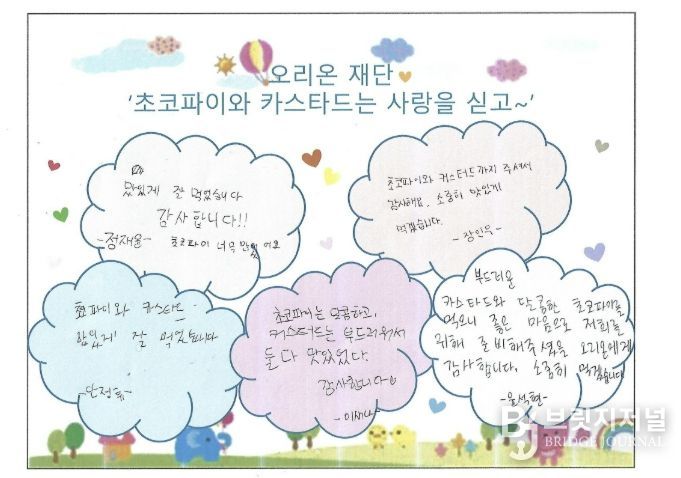 오리온 재단
'초코파이와 카스타드는 사랑을 싣고~'
맛있게 잘 먹었습니다
감사합니다!!
-정재율- 초코파이 너무 맛있어요
초코파이와 커스터드까지 주셔서
감사해요. 소중히 맛있게
먹겠습니다.
-장인우-
초코파이와 카스타드
맛있게 잘 먹었습니다
초코파이는 달콤하고,
커스터드는 부드러워서
둘 다 맛있었다.
감사합니다
부드러운
카스타드와 달콤한 초코파이를
먹으니 좋은 마음으로 저희를
위해 준비해주셨을 오리온에게
감사합니다. 소중히 먹겠습니다
-윤석현-
브릿지저널
BRIDGE JOURNAL